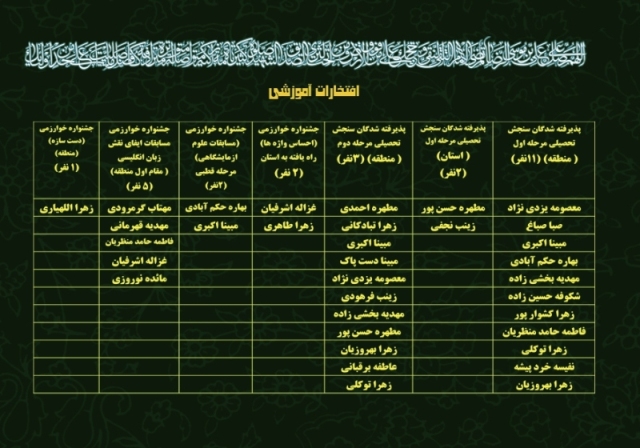 افتخارات آموزشی
پذیرفته شدگان سنجش تحصیلی مرحله اول (منطقه) (۱۱نفر)
پذیرفته شدگان سنجش تحصیلی مرحله اول (استان) (۲نفر)
پذیرفته شدگان سنجش تحصیلی مرحله دوم (منطقه) (۳نفر)
جشنواره خوارزمی (احساس واژه ها) راه یافته به استان (۲ نفر)
جشنواره خوارزمی (مسابقات علوم ازمایشگاهی) مرحله قطبی (۲نفر)
جشنواره خوارزمی مسابقات ایفای نقش زبان انگلیسی (مقام اول منطقه) (۵ نفر)
جشنواره خوارزمی (دست سازه) (منطقه) (۱ نفر)
معصومه یزدی نژاد مطهره حسن پور مطهره احمدی غزاله اشرفیان بهاره حکم آبادی مهتاب گرمرودی زهرا اللهیاری
صبا صباغ زینب نجفی زهرا تبادکانی زهرا طاهری مبینا اکبری مهدیه قهرمانی
مبینا اکبری مبینا اکبری فاطمه حامد منظریان
بهاره حکم آبادی مبینا دست پاک غزاله اشرفیان
مهدیه بخشی زاده معصومه یزدی نژاد مائده نوروزی
شکوفه حسین زاده زینب فرهودی
زهرا کشوار پور مهدیه بخشی زاده
فاطمه حامد منظریان مطهره حسن پور
زهرا توکلی زهرا بهروزیان
نفیسه خرد پیشه عاطفه برقبانی
زهرا بهروزیان زهرا توکلی